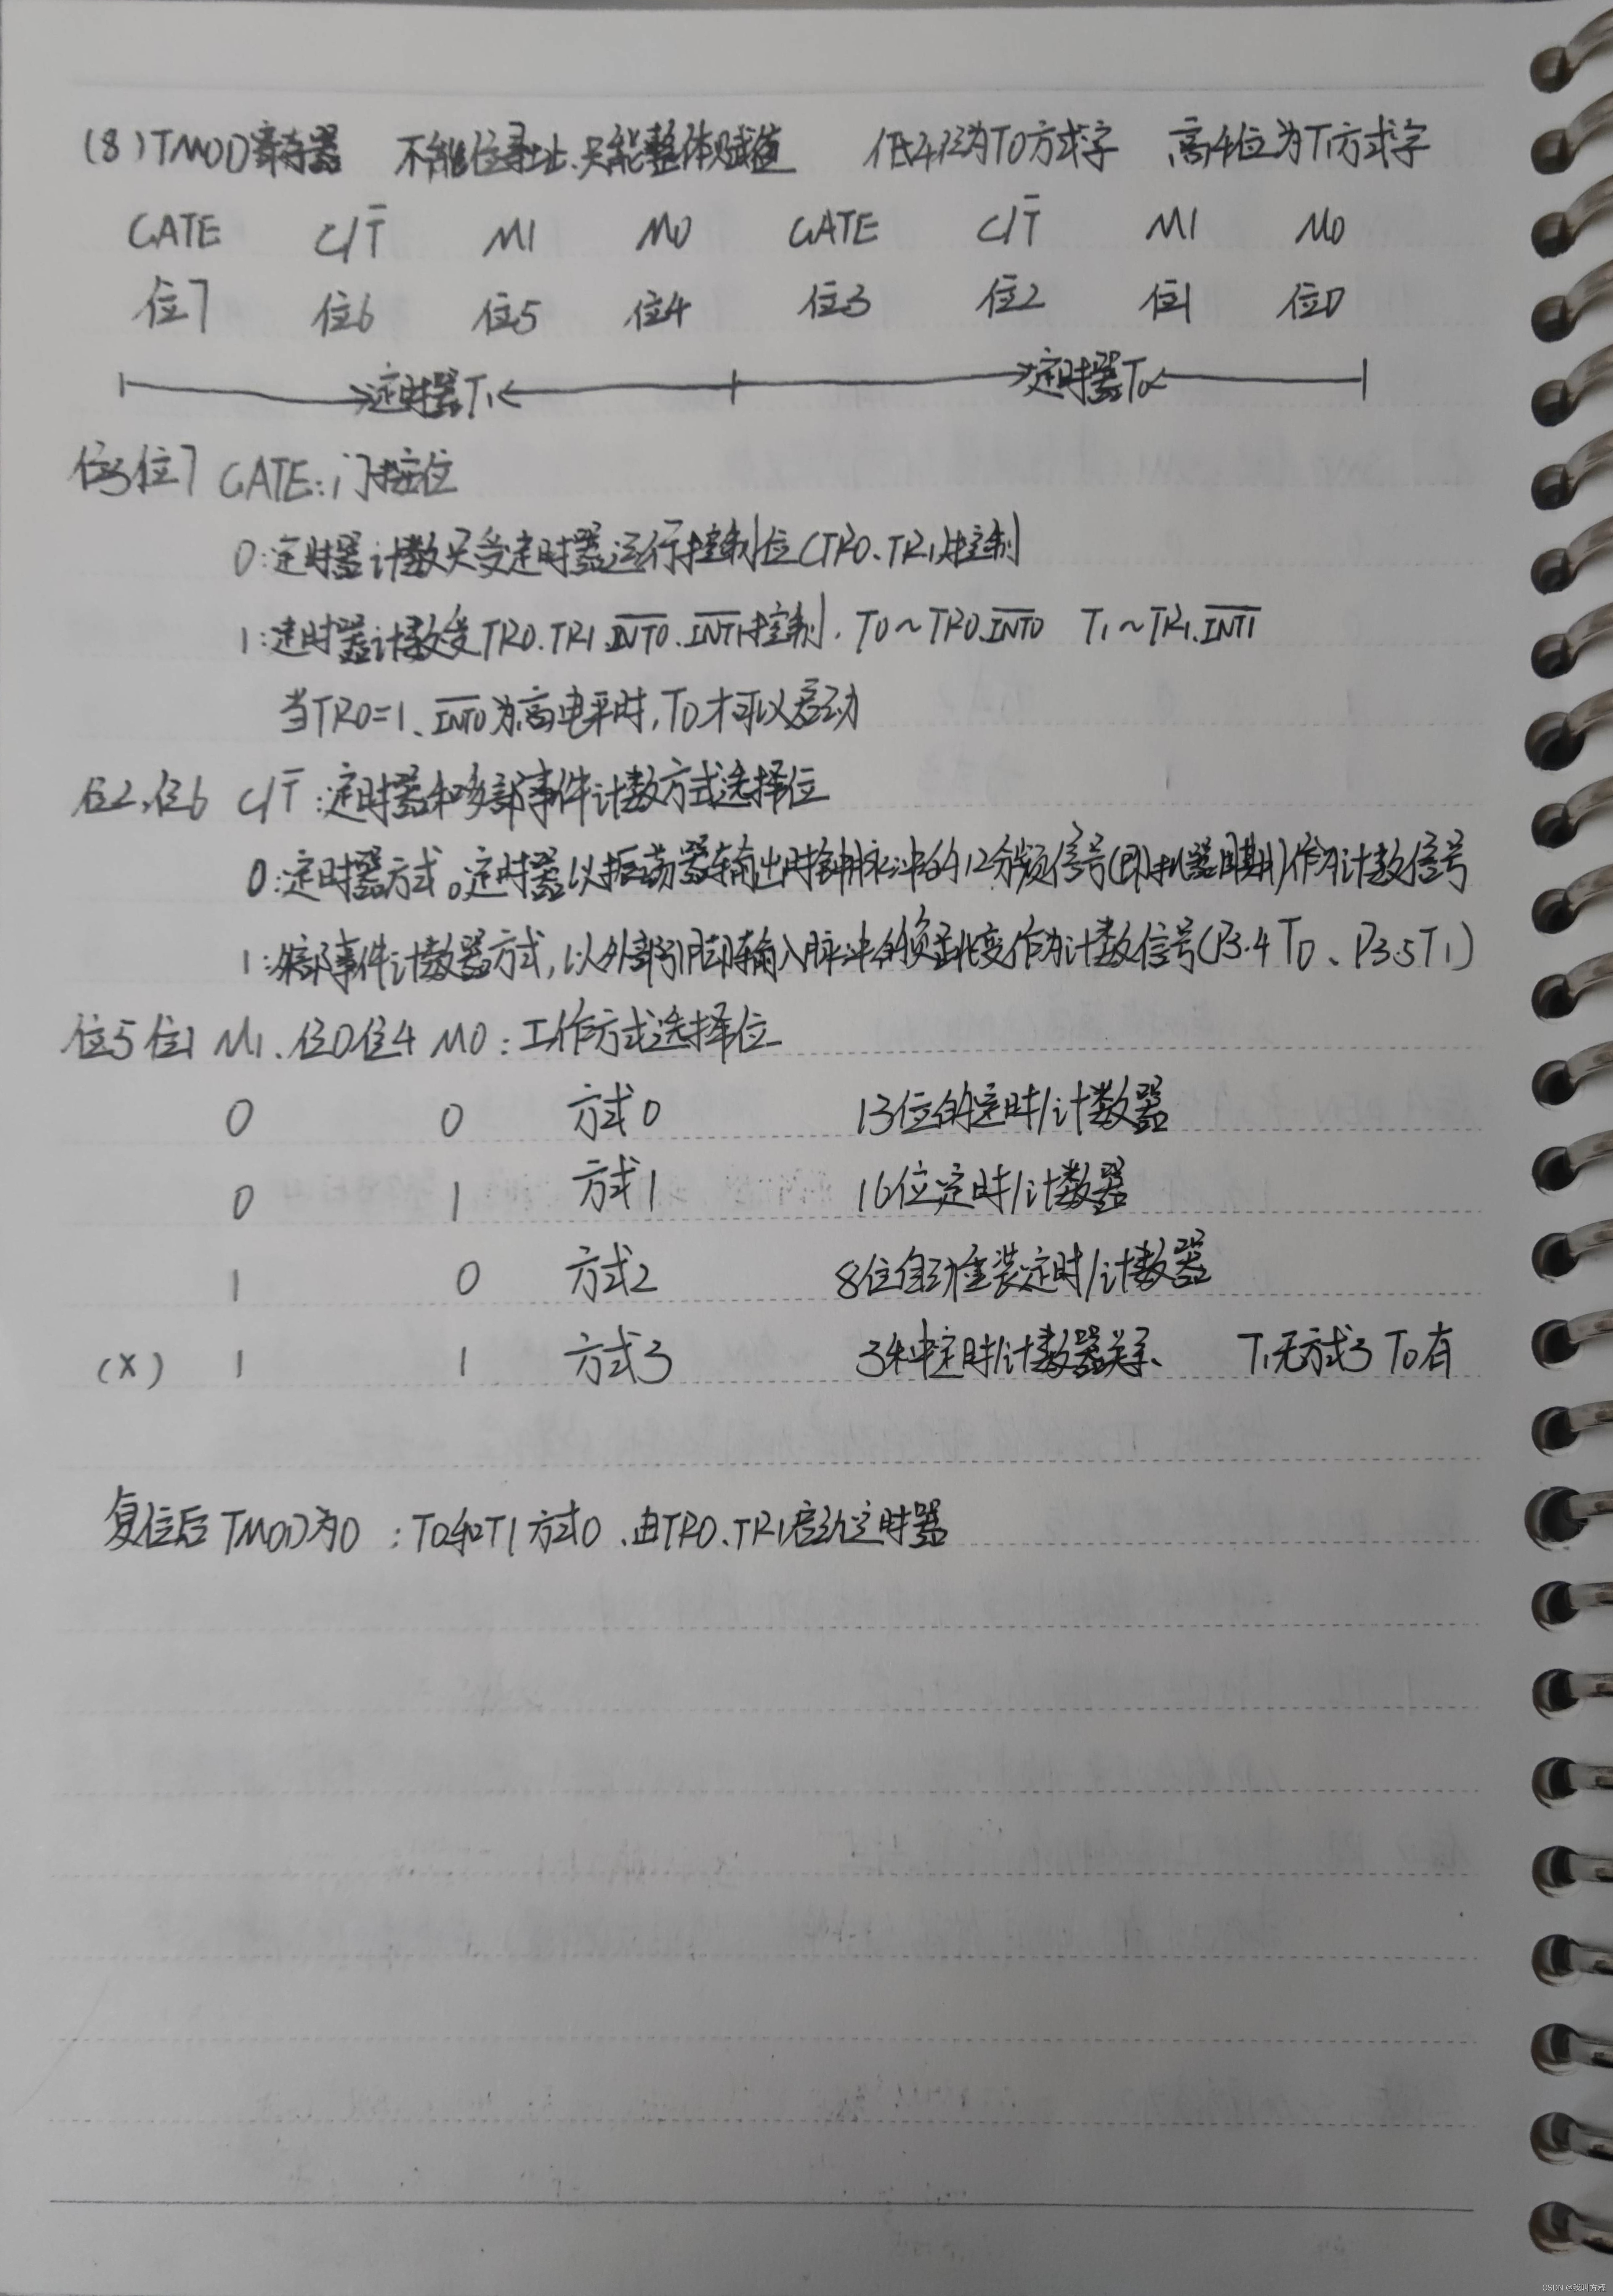 (8)TMOD寄存器 不能位寻址、只能整体赋值 低4位为T0方式字 高4位为T1方式字
GATE C/T̅ M1 M0 GATE C/T̅ M1 M0
位7 位6 位5 位4 位3 位2 位1 位0
定时器T1 定时器T0
位3位7 GATE:门控位
0:定时器计数只受定时器运行控制位(TR0、TR1)控制
1:定时器计数受TR0、TR1、I̅N̅T̅0̅、I̅N̅T̅1̅控制. T0~TR0、I̅N̅T̅0̅ T1~TR1、I̅N̅T̅1̅
当TR0=1、I̅N̅T̅0̅为高电平时,T0才可以启动
位2、位6 C/T̅:定时器和外部事件计数方式选择位
0:定时器方式。定时器以振荡器输出时钟脉冲的12分频信号(即机器周期)作为计数信号
1:外部事件计数器方式,以外部引脚输入脉冲的负跳变作为计数信号(P3.4 T0、P3.5T1)
位5位1 M1、位0位4 M0:工作方式选择位
0 0 方式0 13位的定时/计数器
0 1 方式1 16位定时/计数器
1 0 方式2 8位自动重装定时/计数器
(X) 1 1 方式3 3种定时/计数器关系、 T1无方式3 T0有
复位后TMOD为0:T0和T1方式0、由TR0、TR1启动定时器
CSDN @我叫方程